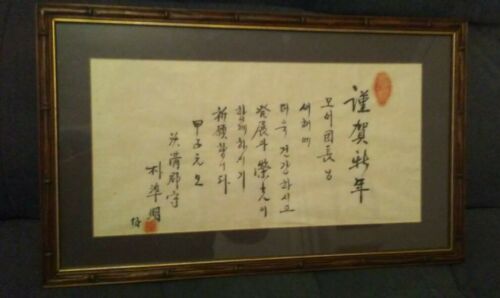 謹賀新年
모어團長님
새해에
더욱 건강하시고
發展과 榮光이
함께하시기
祈願합니다
甲子元旦
郡守
朴準